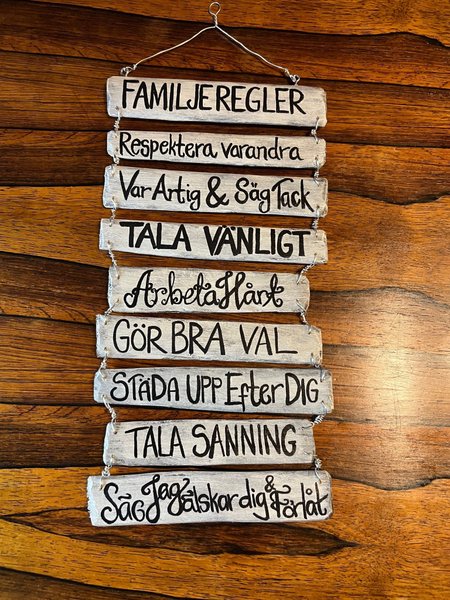 FAMILJEREGLER
Respektera varandra
Var Artig & Säg Tack
TALA VÄNLIGT
Arbeta Hårt
GÖR BRA VAL
STÄDA UPP Efter DIG
TALA SANNING
SÄG Jag älskar dig & Förlåt